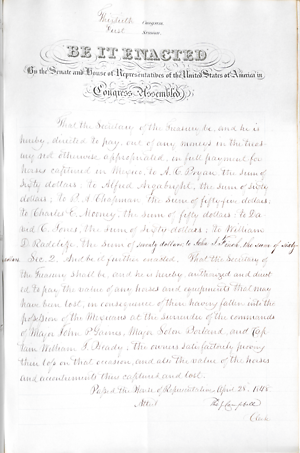 Thirtieth Congress
First Session
BE IT ENACTED
By the Senate and House of Representatives of the United States of America in
Congress Assembled,
That the Secretary of the Treasury be, and he is
hereby, directed to pay, out of any moneys in the treas-
ury not otherwise appropriated, in full payment for
horses captured in Mexico, to A. C. the sum of
sixty dollars; to Alfred Argabright, the sum of sixty
dollars; to Chapman the sum of fifty five dollars;
to Charles C. Horney, the sum of fifty dollars; to Da-
vid C. Jones, the sum of sixty dollars; to William
D. Radcliffe the sum of dollars; to John the sum of
Sec. 2. And be it further enacted, That the Secretary of
the Treasury shall be, and he is hereby authorized and direct-
ed to pay the value of any horses and equipments that may
have been lost, in consequence of their having fallen into the
possession of the Mexicans at the surrender of the commands
of Major John P. Gaines, Major Solon Borland, and Cap-
tain William J. Heady, the owners satisfactorily proving
their loss on that occasion, and also the value of the horses
and accoutrements then captured and lost.
Passed the House of Representatives April 28, 1848
Attest
Th J Campbell
Clerk